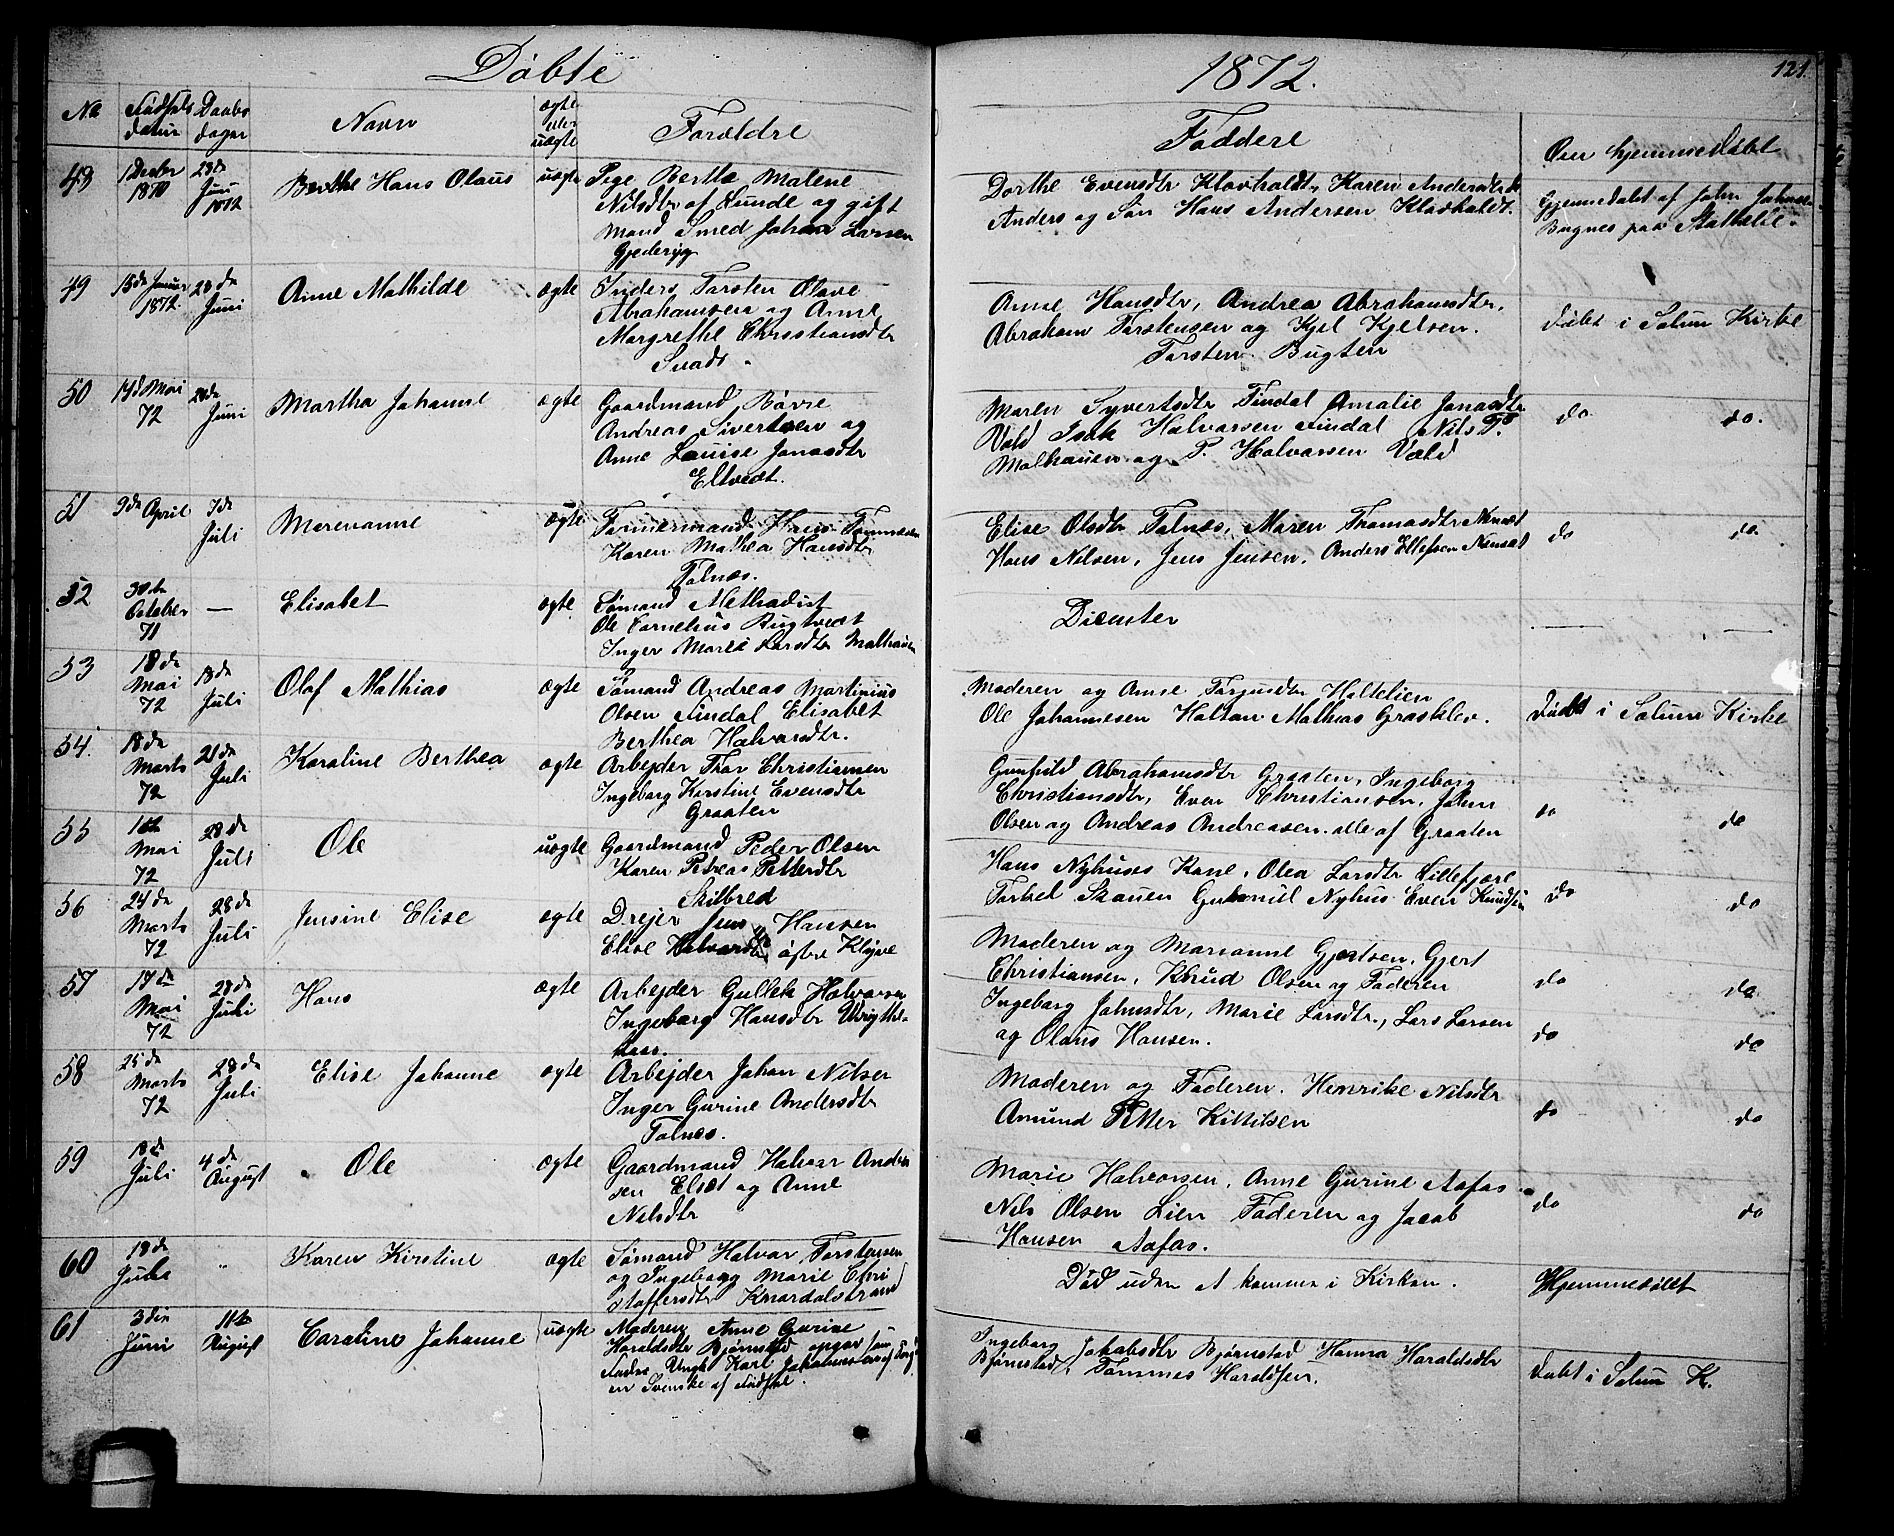 Døbte
1872.
121.
No
Fødsels datum
Daabs dager
Navn
ægte eller uægte
Forældre
Faddere
Om hjemmedøbt
48
1 Decbr 1870
23de Juni 1872
Berthe Hans Olaus
uægte
Pige Berthe Malene
Nilsdtr af Lunde og gift
Mand Smed Johan Larsen
Gjederyg
Dorthe Evensdtr Klovholdt, Karen Andersdtr
Anders og Søn Hans Andersen Klovholdt.
Hjemmedøbt af John Johnsen
Bugnes paa Stathelle.
49
15de Januar 1872.
23de Juni
Anne Mathilde
ægte
Inders. Torsten Olave
Abrahamsen og Anne
Margrethe Christiansdtr
Svads
Anne Hansdtr, Andrea Abrahamsdtr,
Abraham Torstensen og Kjel Kjelsen.
Torsten Bugten
døbt i Solum Kirke
50
14d Mai 72
23de Juni
Martha Johanne
ægte
Gaardmand Børre
Andreas Sivertsen og
Anne Louise Jonasdtr
Eltvedt.
Maren Syvertsdtr Findal Amalie Jonasdtr
Vold Isak Halvorsen Findal Nils P.
Malhauen og P. Halvorsen Vold
do do.
51
9de April
7de Juli
Merevanne
ægte
Tømmermand Hans Tommesen
Karen Mathea Hansdtr
Tolnæs.
Elise Olsdtr Tolnæs, Maren Thomasdtr Nenset
Hans Nilsen, Jens Jensen, Anders Ellefsen Nenset
do do.
52
30te October 71
—
Elisabet
ægte
Sømand Methodist
Ole Cornelius Rugtvedt
Inger Marie Larsdtr Malhauen
Dicenter
— —
53
18de Mai 72
18de Juli
Olaf Mathias
ægte
Sømand Andreas Martinius
Olsen Findal Elisabet
Berthea Halvorsdtr.
Moderen og Anne Torjusdtr Holtelien
Ole Johannesen Holtan Mathias Grasklev.
Døbt i Solum Kirke
54.
18de Marts 72
21de Juli
Karaline Berthea
ægte
Arbejder Thor Christiansen
Ingeborg Kirstine Evensdtr
Graaten
Gunhild Abrahamsdtr Graaten, Ingeborg
Christiansdtr, Even Christiansen, John
Olsen og Andreas Andreasen. alle af Graaten
do do
55
16de Mai 72
28de Juli
Ole
uægte
Gaardmand Peder Olsen
Karen Petreas Pettersdtr
Skilbred
Hans Nyhuses Kone, Olea Larsdtr Lillefjære
Torkel Skauen Gunniil Nyhus Even Knudsen
do do
56
24de Marts 72
28de Juli
Jensine Elise
ægte
Drejer Jens Hansen
Elise Halvorsdtr øfre Klyve
Moderen og Marianne Gjertsen, Gjert
Christiansen, Khrud Olsen og Faderen
do do
57
17de Mai 72
28de Juli
Hans
ægte
Arbejder Gullek Halvorsen
Ingeborg Hansdtr
Ingeborg Johnsdtr, Marie Larsdtr, Lars Larsen
og Olaus Hansen.
do do
58
25de Marts 72
28de Juli
Elise Johanne
ægte
Arbejder Johan Nilsen
Inger Gurine Andersdtr
Tolnæs.
Moderen og Faderen. Henrike Nilsdtr
Amund Petter Kittilsen
do do
59
18de Juli
4de August
Ole
ægte
Gaardmand Halvor Andersen
Elset og Anne
Nilsdtr
Marie Halvorsen, Anne Gurine Aafos
Nils Olsen Lien Faderen og Jacob
Hansen Aafos.
do do
60
18de Juli
"
Karen Kirstine
ægte
Sømand Halvor Torstensen
og Ingeborg Marie Chri
stoffersdtr Knardalstrand
Død uden at komme i Kirken.
Hjemmedøbt
61
3die Juni
11te August
Caroline Johanne
uægte
Moderen Anne Gurine
Haraldsdtr Bjørnstad opgav som
Fader Ungk Karl Johannesen af
en Svenske af Fødsel.
Ingeborg Jakobsdtr Bjørnstad Hanna Haraldsdtr
Bjørnstad, Tommes Haraldsen.
Døbt i Solum K.